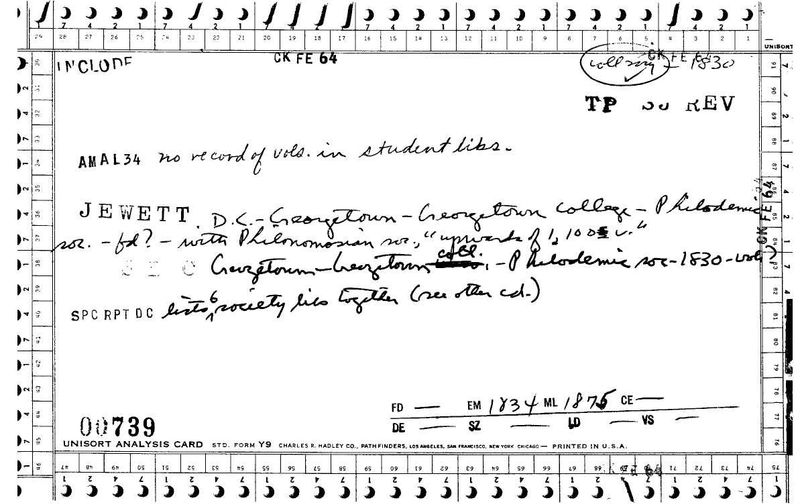 INCLUDE
CK FE 64
CK FE 64
coll soc – 1830
TP REV
UNISORT
AMAL34 no record of vols. in student libs.
JEWETT. D.C.–Georgetown–Georgetown College–Philodemic
soc. – fd? – with Philonomosian soc., "upwards of 1,100 v."
CK FE 64
Georgetown–Georgetown coll.–Philodemic soc–1830–vols
SPC RPT DC lists 6 society libs together (see other cd.)
FD — EM 1834 ML 1875 CE —
DE — SZ — LD — VS —
00739
UNISORT ANALYSIS CARD STD. FORM Y9 CHARLES R. HADLEY CO., PATHFINDERS, LOS ANGELES, SAN FRANCISCO, NEW YORK CHICAGO — PRINTED IN U.S.A.
FE 64